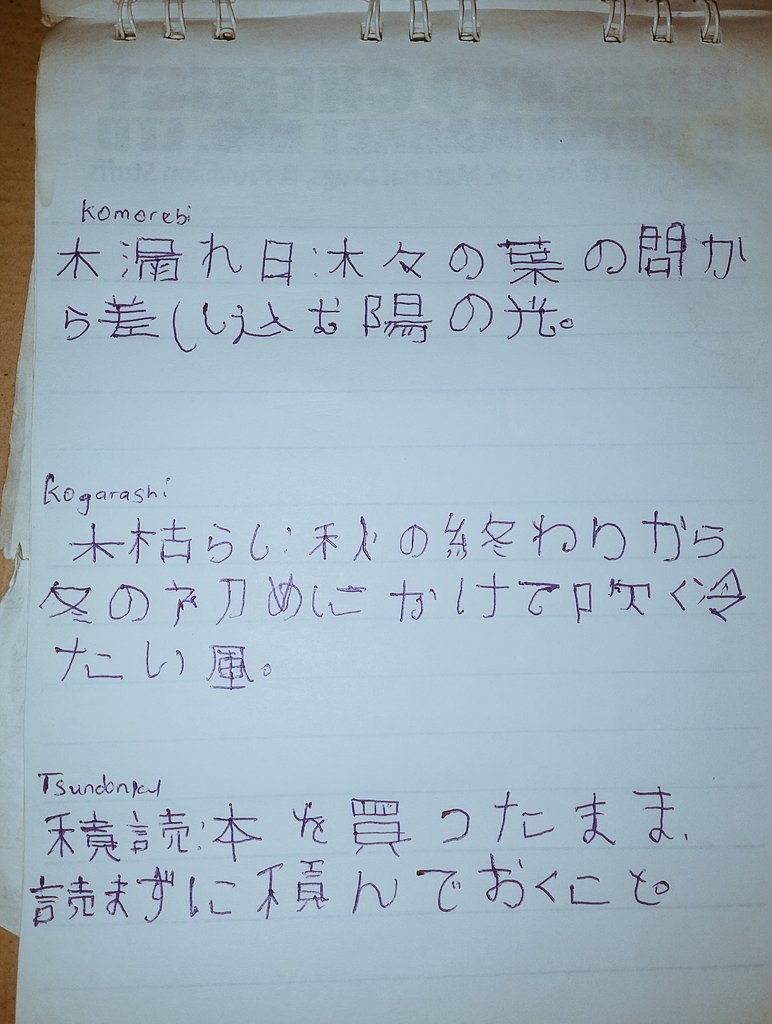 Komorebi
木漏れ日:木々の葉の間か
ら差し込む陽の光。
Kogarashi
木枯らし:秋の終わりから
冬の初めにかけて吹く冷
たい風。
積読:本を買ったまま、
読まずに積んでおくこと。